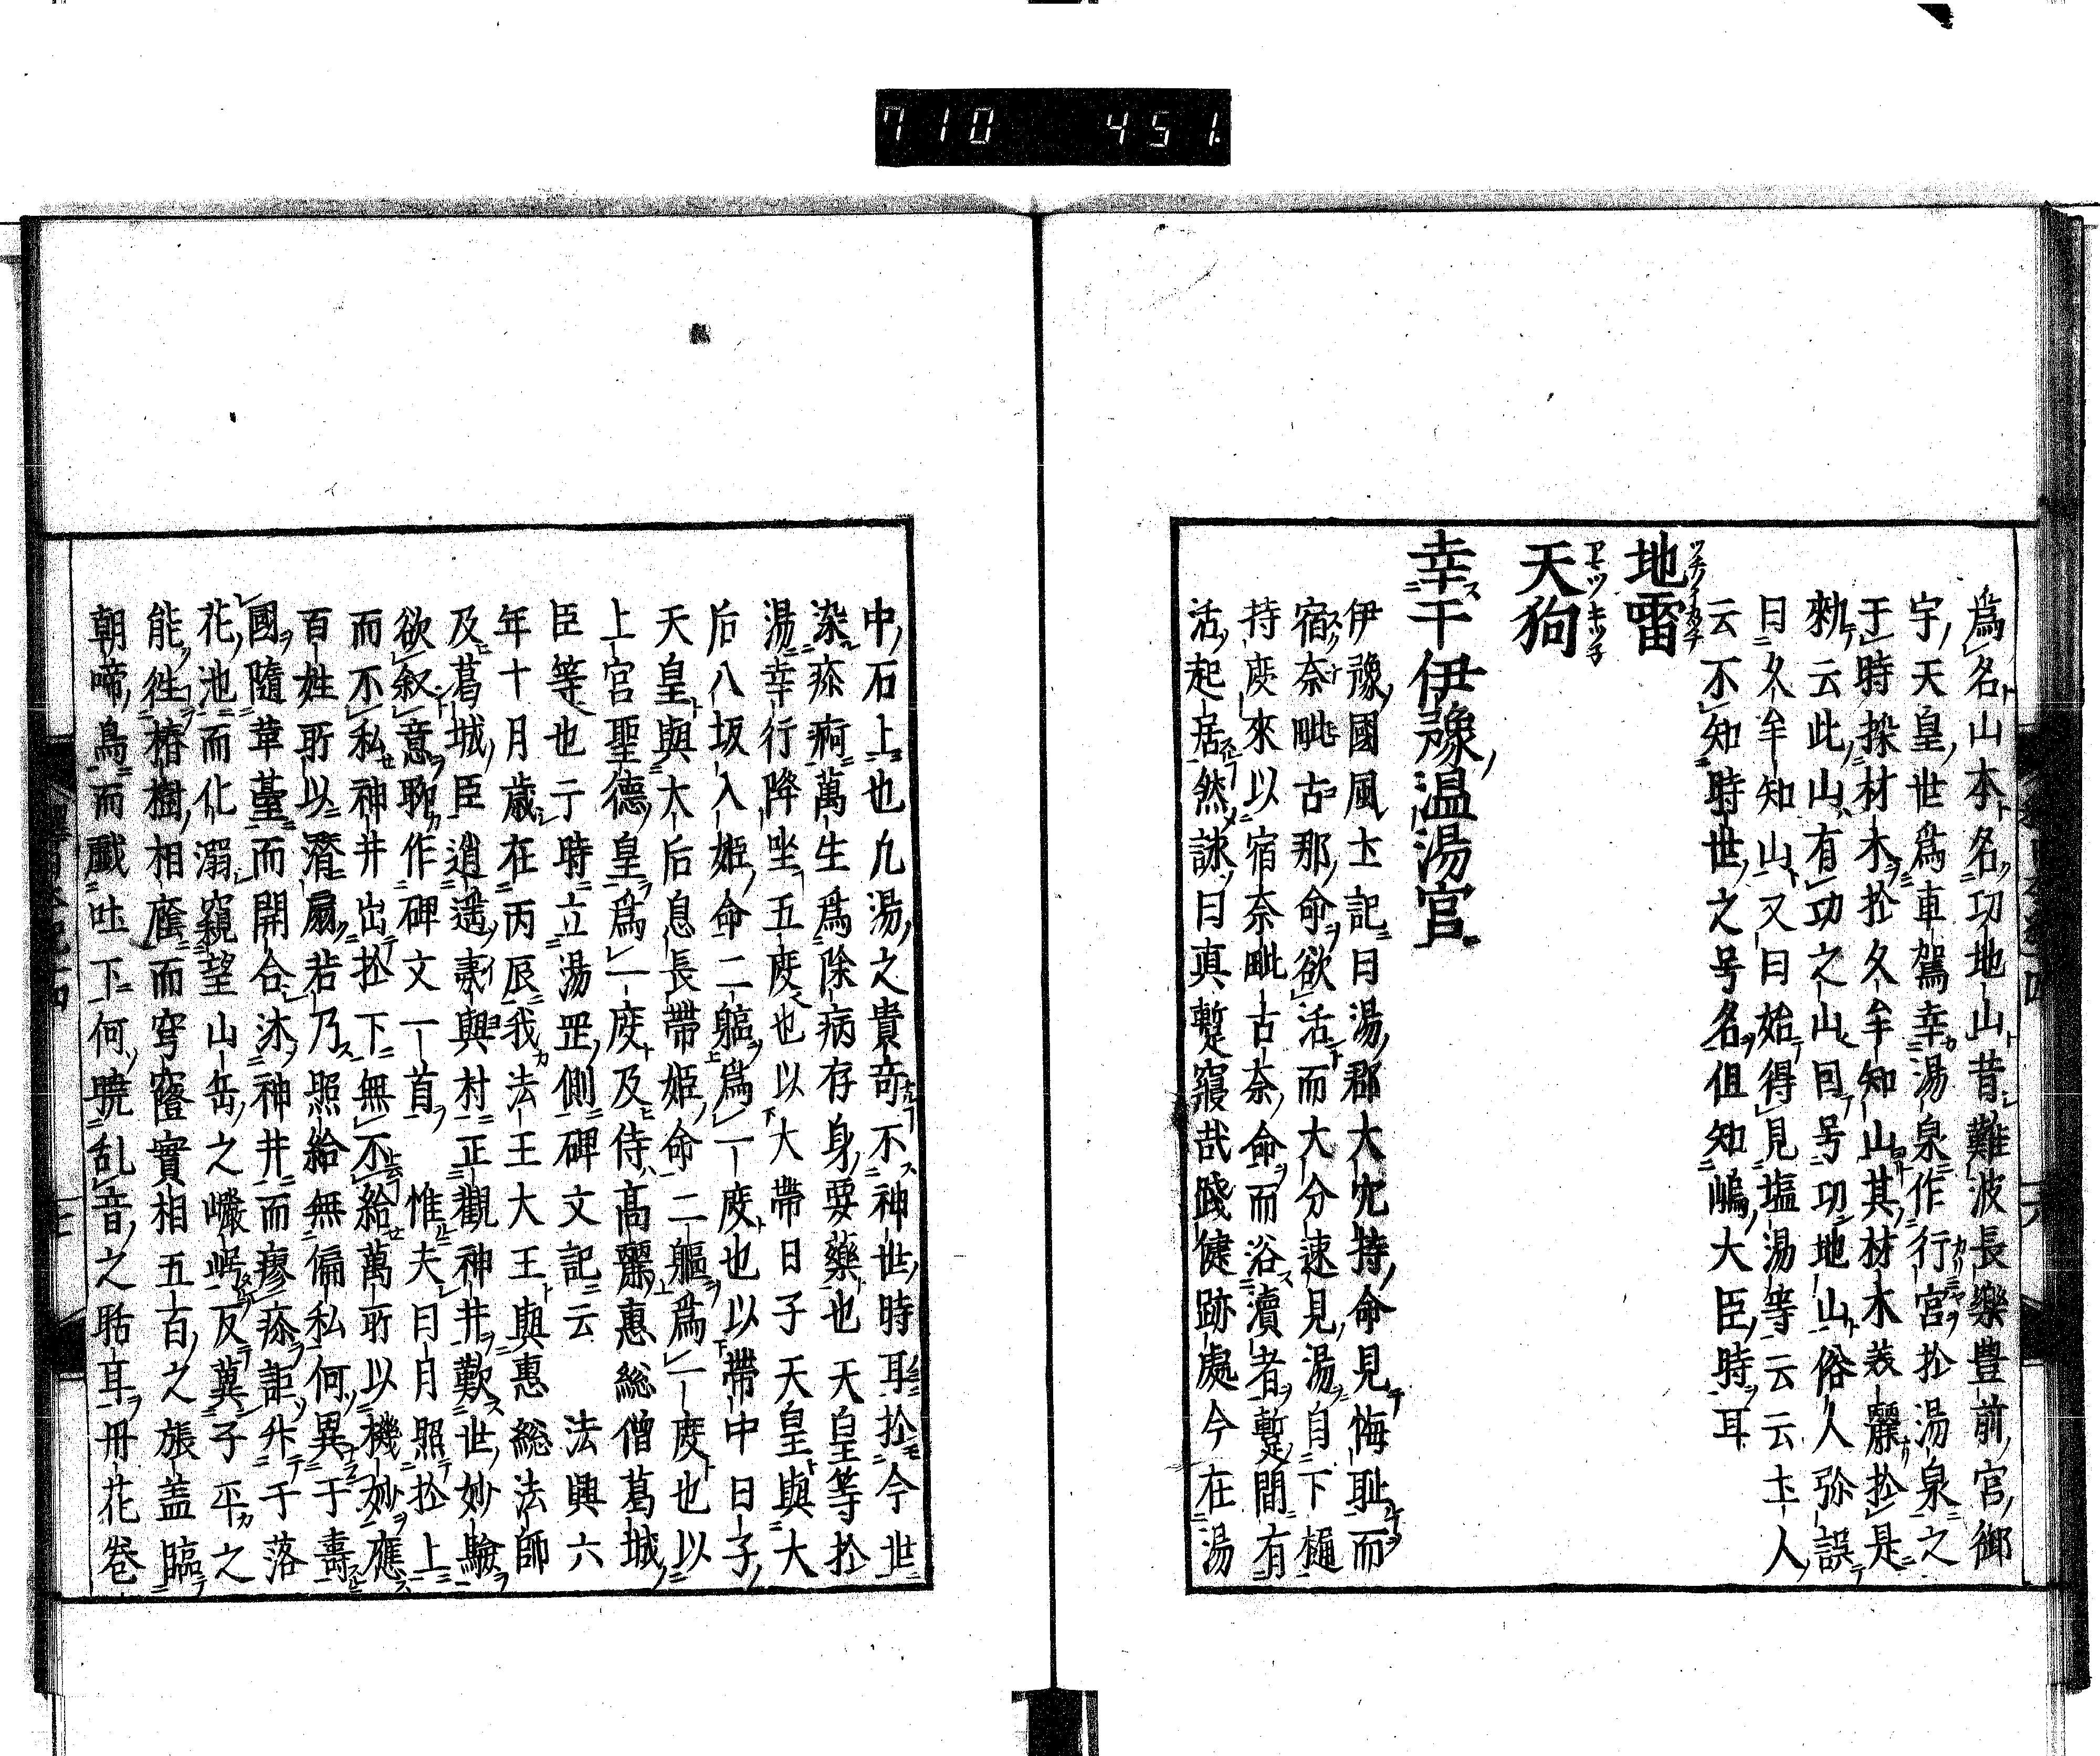 710 451
為名山本名功地山昔難波長樂豊前宮御
宇天皇世為車駕幸湯泉作行宮扵湯泉之
于時採材木扵久牟知山其材木美麗扵是
勑云此山有功之山曰号功地山俗人弥誤
曰久牟知山又曰始得見塩湯等云云土人
云不知時世之号名但知嶋大臣時耳
地雷
ツチノイカツチ
天狗
アマツキツネ
幸于伊豫温湯宮
伊豫國風土記曰湯郡大穴持命見悔耻而
宿奈毗古那命欲活而大分速見湯自下樋
持度來以宿奈毗古奈命而浴瀆者蹔間有
活起居然詠曰真蹔寢哉踐健跡處今在湯
中石上也凢湯之貴奇不神世時耳扵今世
染疹痾萬生為除病存身要藥也天皇等扵
湯幸行降坐五度也以大帶日子天皇與大
后八坂入姫命二軀為一度也以帶中日子
天皇與大后息長帶姫命二軀為一度也以
上宮聖德皇為一度及侍高麗惠総僧葛城
臣等也于時立湯罡側碑文記云 法興六
年十月歳在丙辰我法王大王與惠総法師
及葛城臣逍遥夷與村正觀神井歎世妙驗
欲叙意聊作碑文一首 惟夫日月照扵上
而不私神井出扵下無不給萬所以機妙應
百姓所以潛扇若乃照給無偏私何異于壽
國隨華臺而開合沐神井而瘳疹詎舛于落
花池而化溺窺望山岳之巗崿反冀子平之
能徃椿樹相廕而穹窿實相五百之張盖臨
朝啼鳥而戯吐下何曉乱音之聒耳丹花卷